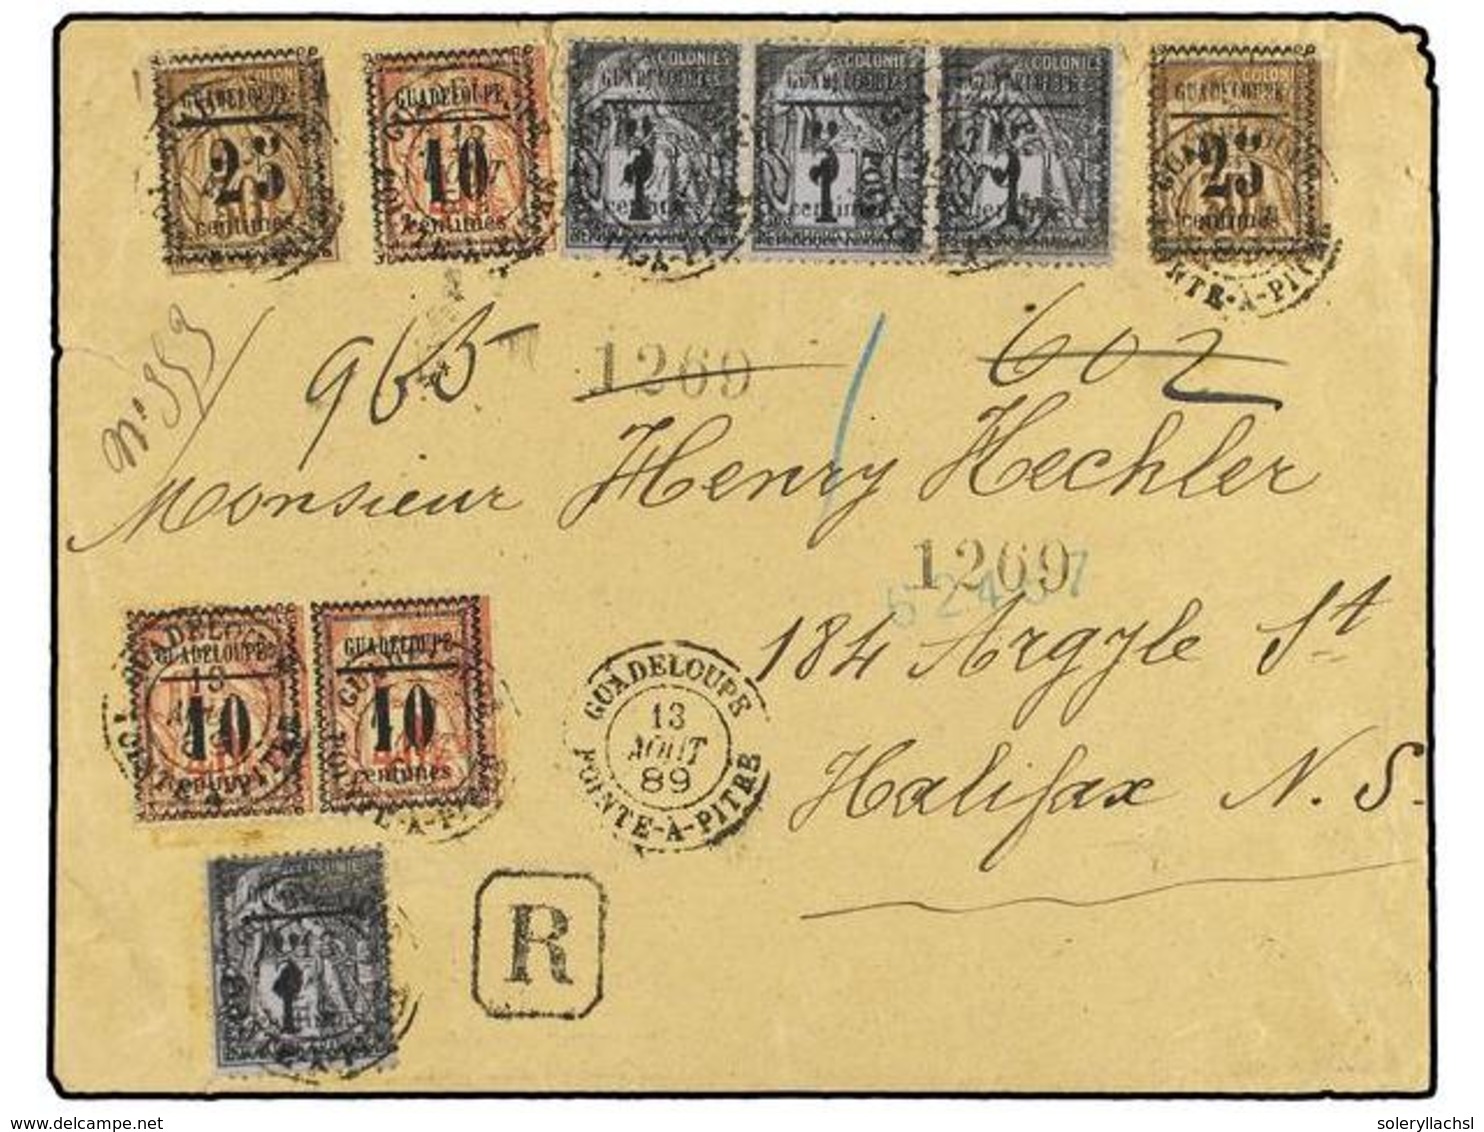 & COLONIES
GUADELOUPE
25
centimes
GUADELOUPE
10
centimes
& COLONIES
GUADELOUPE
1
centimes
& COLONIES
GUADELOUPE
1
centimes
& COLONIES
GUADELOUPE
1
& COLONIES
GUADELOUPE
25
centimes
Nº 353
965
1269
602
Monsieur Henry Hechler
1269
52457
184 Argyle St
Halifax N.S.
GUADELOUPE
10
centimes
GUADELOUPE
10
centimes
GUADELOUPE
13
AOUT
89
POINTE-À-PITRE
& COLONIES
1
R
soleryllachsl